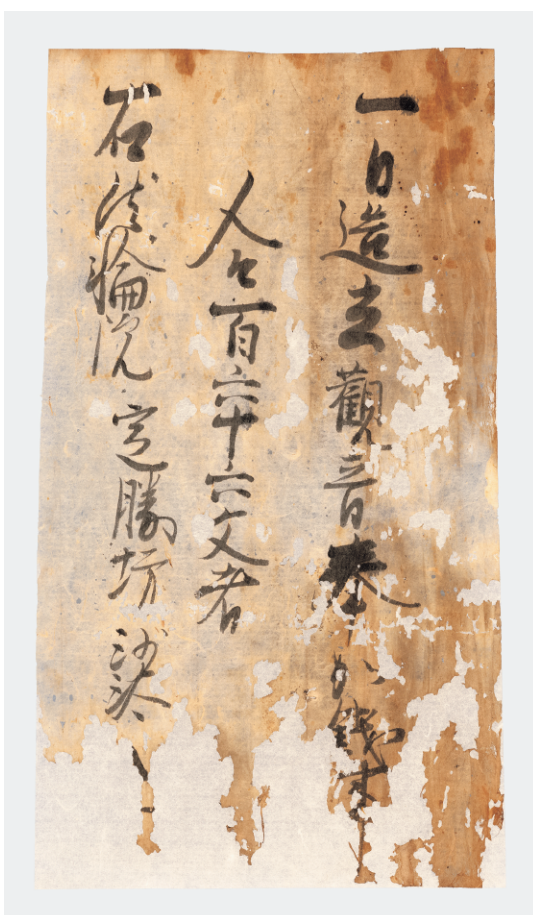 一日造立觀音奉加錢事
人々一百六十六文者
右法輪院定勝坊沙汰